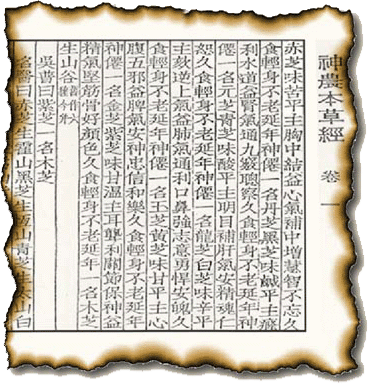 神農本草經 卷一
赤芝味苦平主胸中結益心氣補中增慧智不忘久
食輕身不老延年神僊一名丹芝黑芝味鹹平主癃
利水道益腎氣通九竅聰察久食輕身不老延年神
僊一名元芝青芝味酸平主明目補肝氣安精魂仁
恕久食輕身不老延年神僊一名龍芝白芝味辛平
主欬逆上氣益肺氣通利口鼻強志意勇悍安魄久
食輕身不老延年神僊一名玉芝黃芝味甘平主心
腹五邪益脾氣安神忠信和樂久食輕身不老延年
神僊一名金芝紫芝味甘溫主耳聾利關節保神益
精氣堅筋骨好顏色久食輕身不老延年一名木芝
生山谷
吳普曰紫芝一名木芝
名醫曰赤芝生霍山黑芝生山青芝生山白